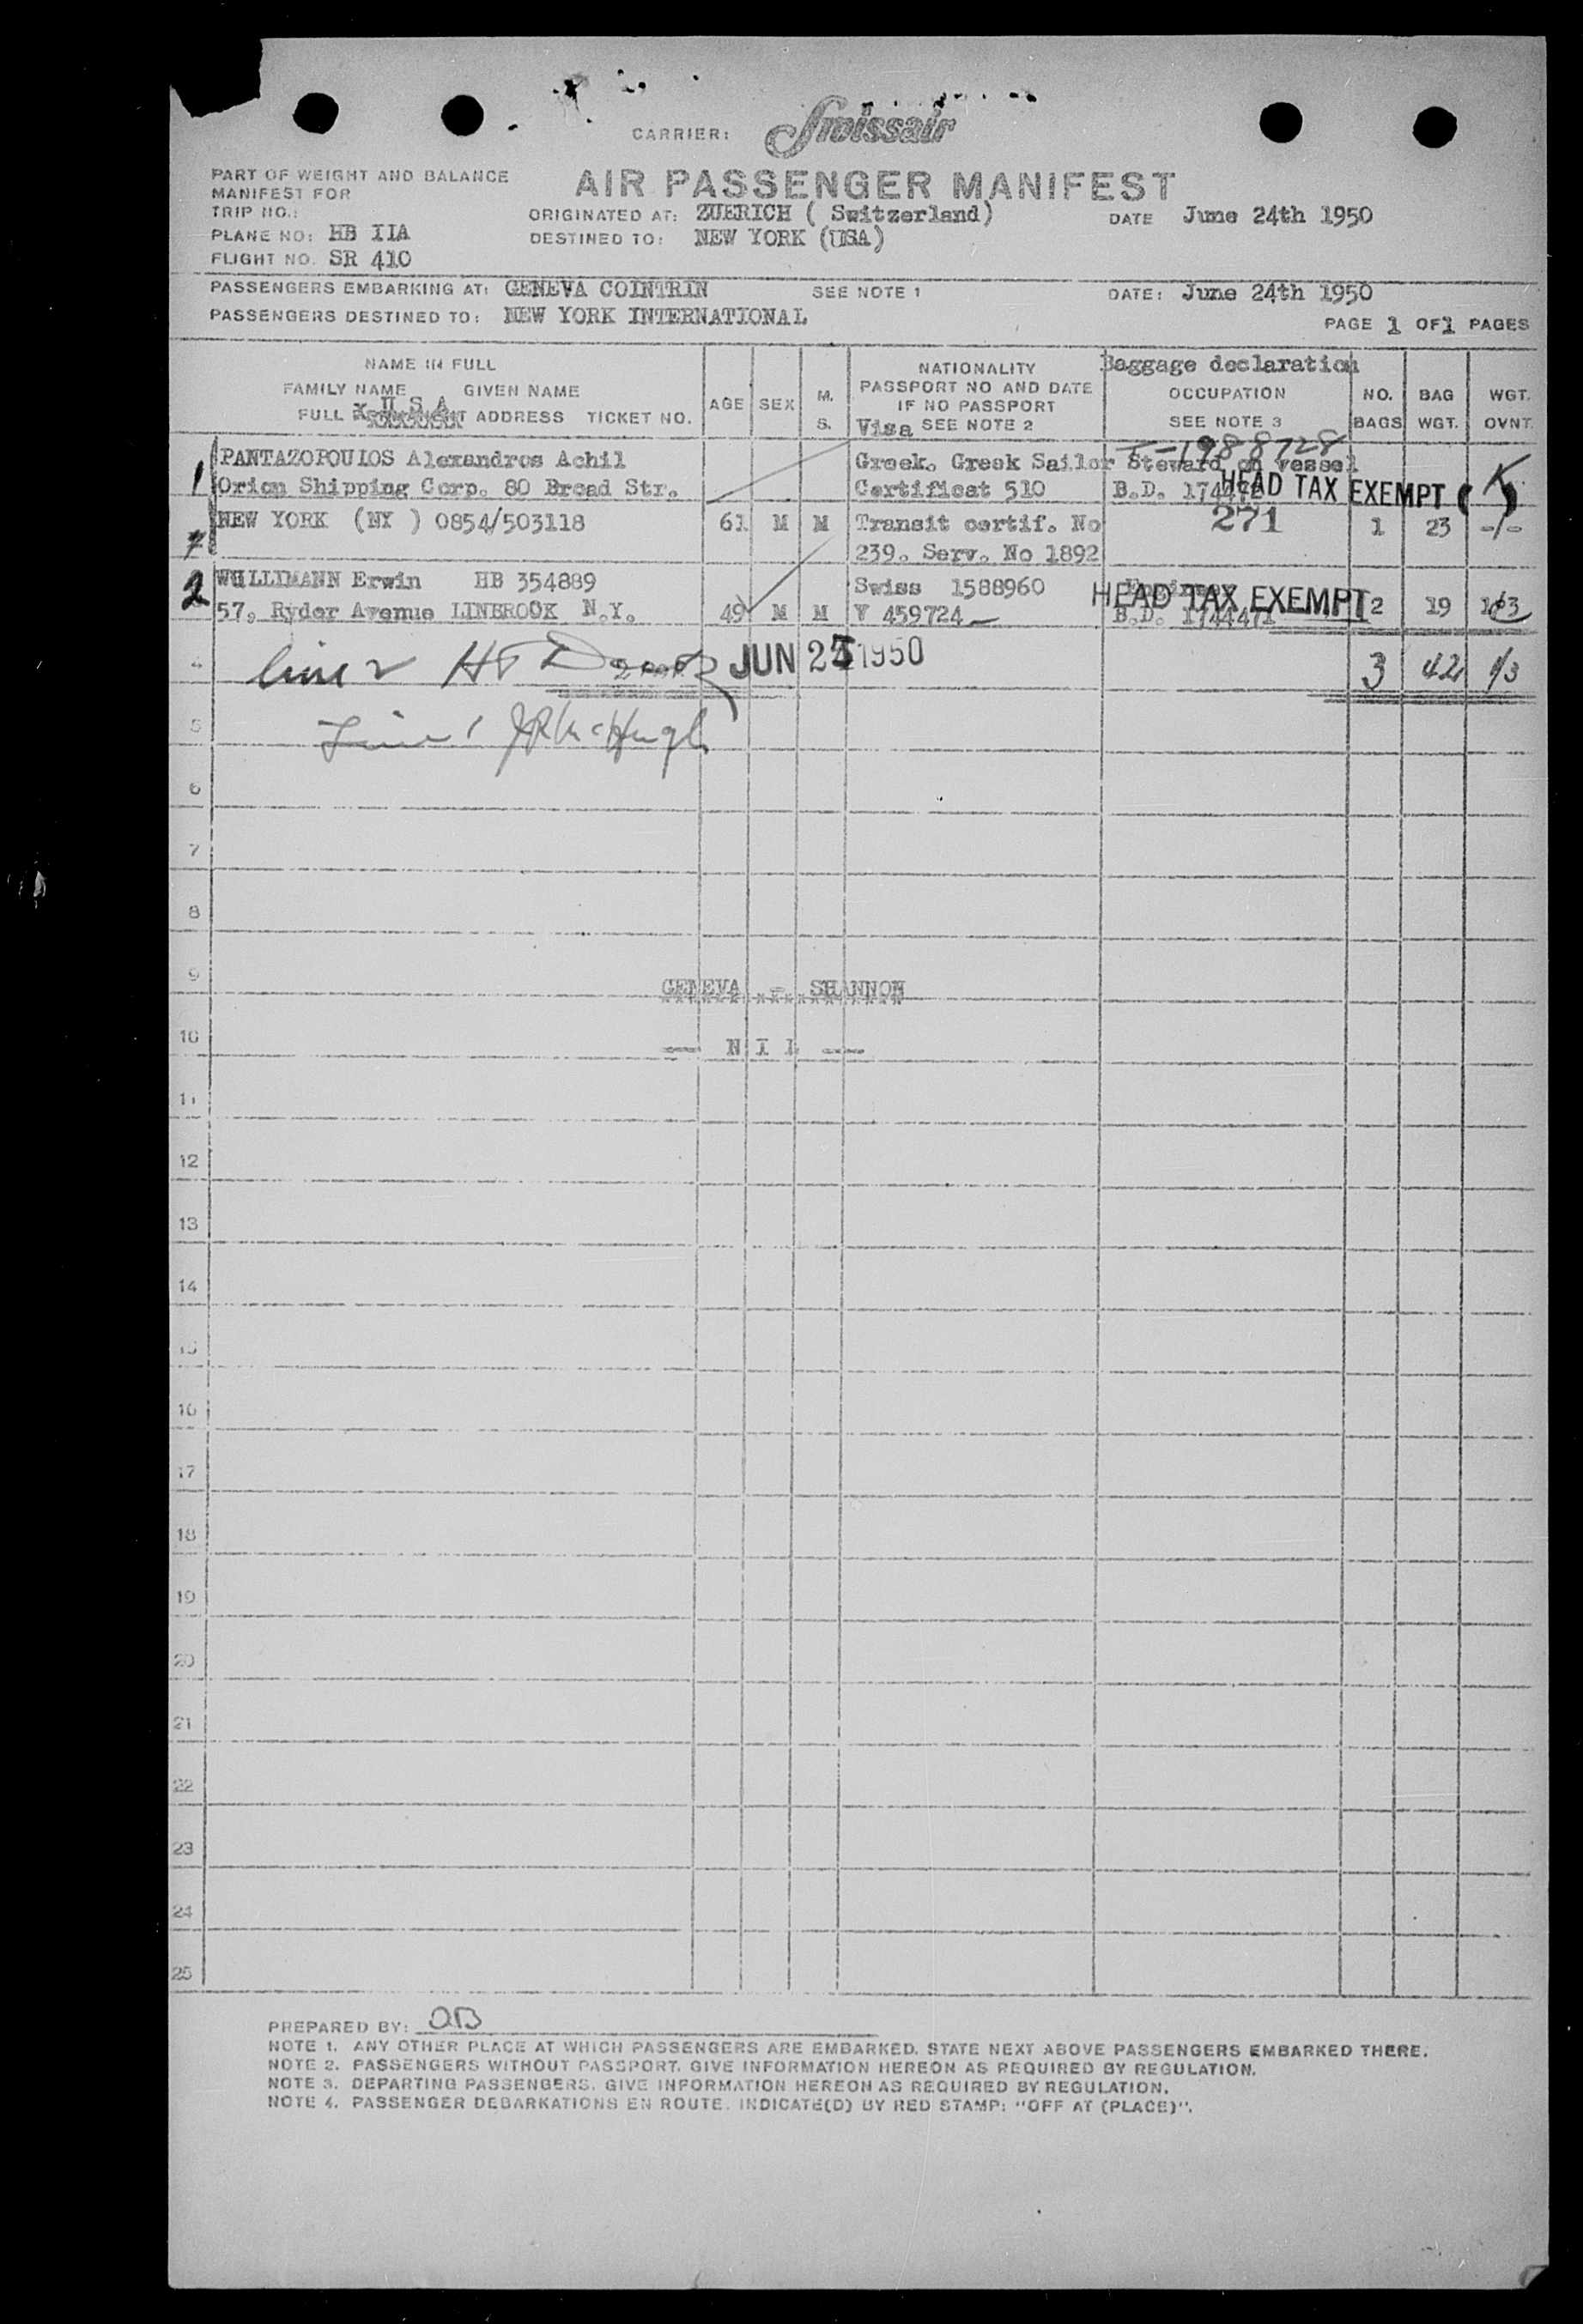 CARRIER: Swissair
PART OF WEIGHT AND BALANCE
MANIFEST FOR
AIR PASSENGER MANIFEST
TRIP NO.:
ORIGINATED AT: ZUERICH ( Switzerland)
DATE June 24th 1950
PLANE NO: HB IIA
DESTINED TO: NEW YORK (USA)
FLIGHT NO. SR 410
PASSENGERS EMBARKING AT: GENEVA COINTRIN SEE NOTE 1 DATE: June 24th 1950
PASSENGERS DESTINED TO: NEW YORK INTERNATIONAL
PAGE 1 OF 1 PAGES
NAME IN FULL
FAMILY NAME GIVEN NAME
x U S A
FULL ADDRESS TICKET NO.
AGE
SEX
M.
S.
NATIONALITY
PASSPORT NO AND DATE
IF NO PASSPORT
Visa SEE NOTE 2
Baggage declaration
OCCUPATION
SEE NOTE 3
NO.
BAGS
BAG
WGT.
WGT.
OVNT.
1988728
1 PANTAZOPOULOS Alexandros Achil Greek. Greek Sailor Steward on vessel
Orion Shipping Corp. 80 Broad Str. Certificat 510 B.D. HEAD TAX EXEMPT ( K )
NEW YORK (NY ) 0854/503118 61 M M Transit certif. No 271 1 23 -/-
239. Serv. No 1892
2 WULLIMANN Erwin HB 354889 Swiss 1588960 HEAD TAX EXEMPT
57. Ryder Avenue LINBROOK N.Y. 49 M M V 459724 B.D. 1744471 2 19
4 line 2 JUN 25 1950 3 42 1/3
5 Line 1 JR McHugh
6
7
8
9 GENEVA - SHANNON
10 N I L
11
12
13
14
15
16
17
18
19
20
21
22
23
24
25
PREPARED BY:
NOTE 1. ANY OTHER PLACE AT WHICH PASSENGERS ARE EMBARKED. STATE NEXT ABOVE PASSENGERS EMBARKED THERE.
NOTE 2. PASSENGERS WITHOUT PASSPORT. GIVE INFORMATION HEREON AS REQUIRED BY REGULATION.
NOTE 3. DEPARTING PASSENGERS. GIVE INFORMATION HEREON AS REQUIRED BY REGULATION.
NOTE 4. PASSENGER DEBARKATIONS EN ROUTE. INDICATE(D) BY RED STAMP: "OFF AT (PLACE)".